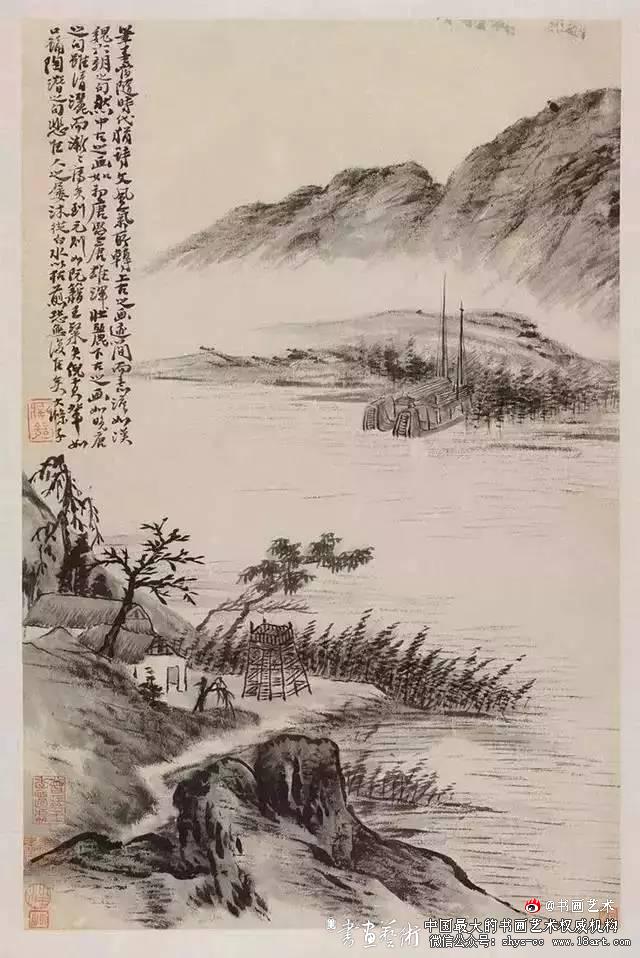 筆墨當隨時代猶詩文風氣所轉上古之画迹間而意淡如漢
魏六朝之句然中古之画如初唐盛唐雄渾壯麗下古之画如晚唐
之句雖清灑而漸漸薄矣到元則如阮籍王粲矣倪黃輩如
口誦陶潛之句悲佳人之屢沐從白水以枯煎恐無復佳矣 大滌子
@书画艺术
書畫藝術 中国最大的书画艺术权威机构
微信公众号：shys-cc www.18art.com